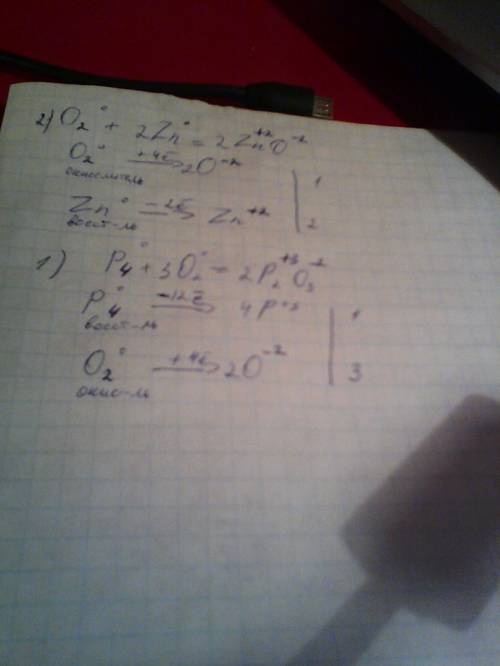 2) O₂⁰ + 2Zn⁰ = 2Zn⁺²O⁻²
O₂⁰ +4ē → 2O⁻² | 1
окислитель
Zn⁰ -2ē → Zn⁺² | 2
восст-ль
1) P₄⁰ + 3O₂⁰ = 2P₂⁺³O₃⁻²
P₄⁰ -12ē → 4P⁺³ | 1
восст-ль
O₂⁰ +4ē → 2O⁻² | 3
окис-ль